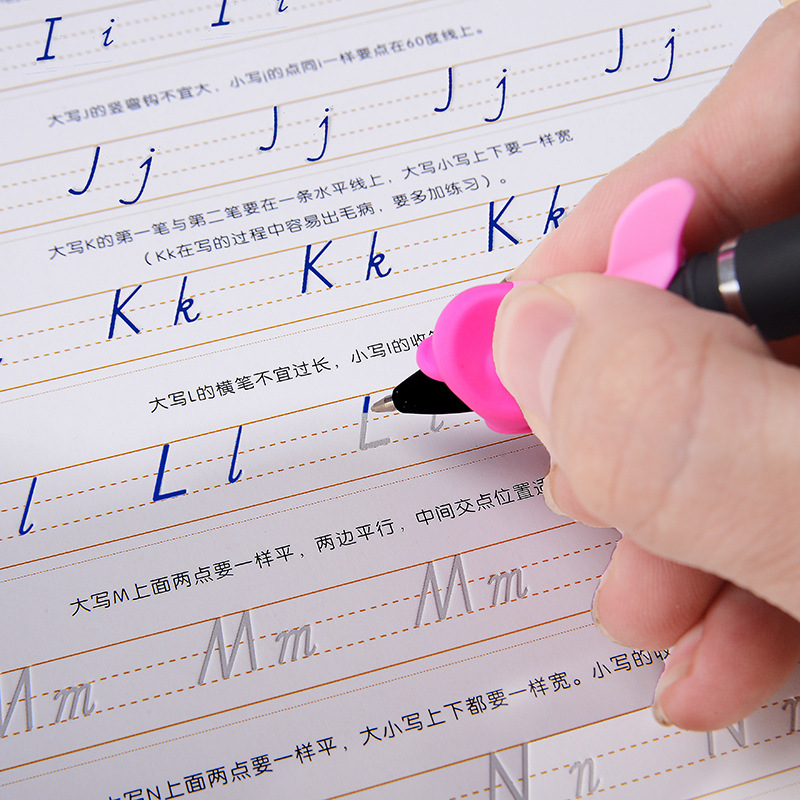 I i I i
大写J的竖弯钩不宜大，小写j的点同i一样要点在60度线上。
J j J j J j J j
大写K的第一笔与第二笔要在一条水平线上，大写小写上下要一样宽
（Kk在写的过程中容易出毛病，要多加练习）。
K k K k K k
大写L的横笔不宜过长，小写l的收
l L l L l
大写M上面两点要一样平，两边平行，中间交点位置
M m M m M m
大写N上面两点要一样平，大小写上下都要一样宽。小写的收
N n N